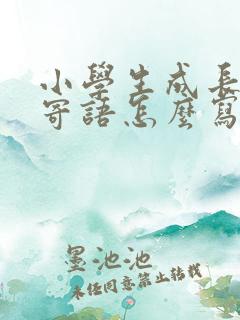 小學生成長
寄語怎麼寫
墨池池
未經同意禁止轉載